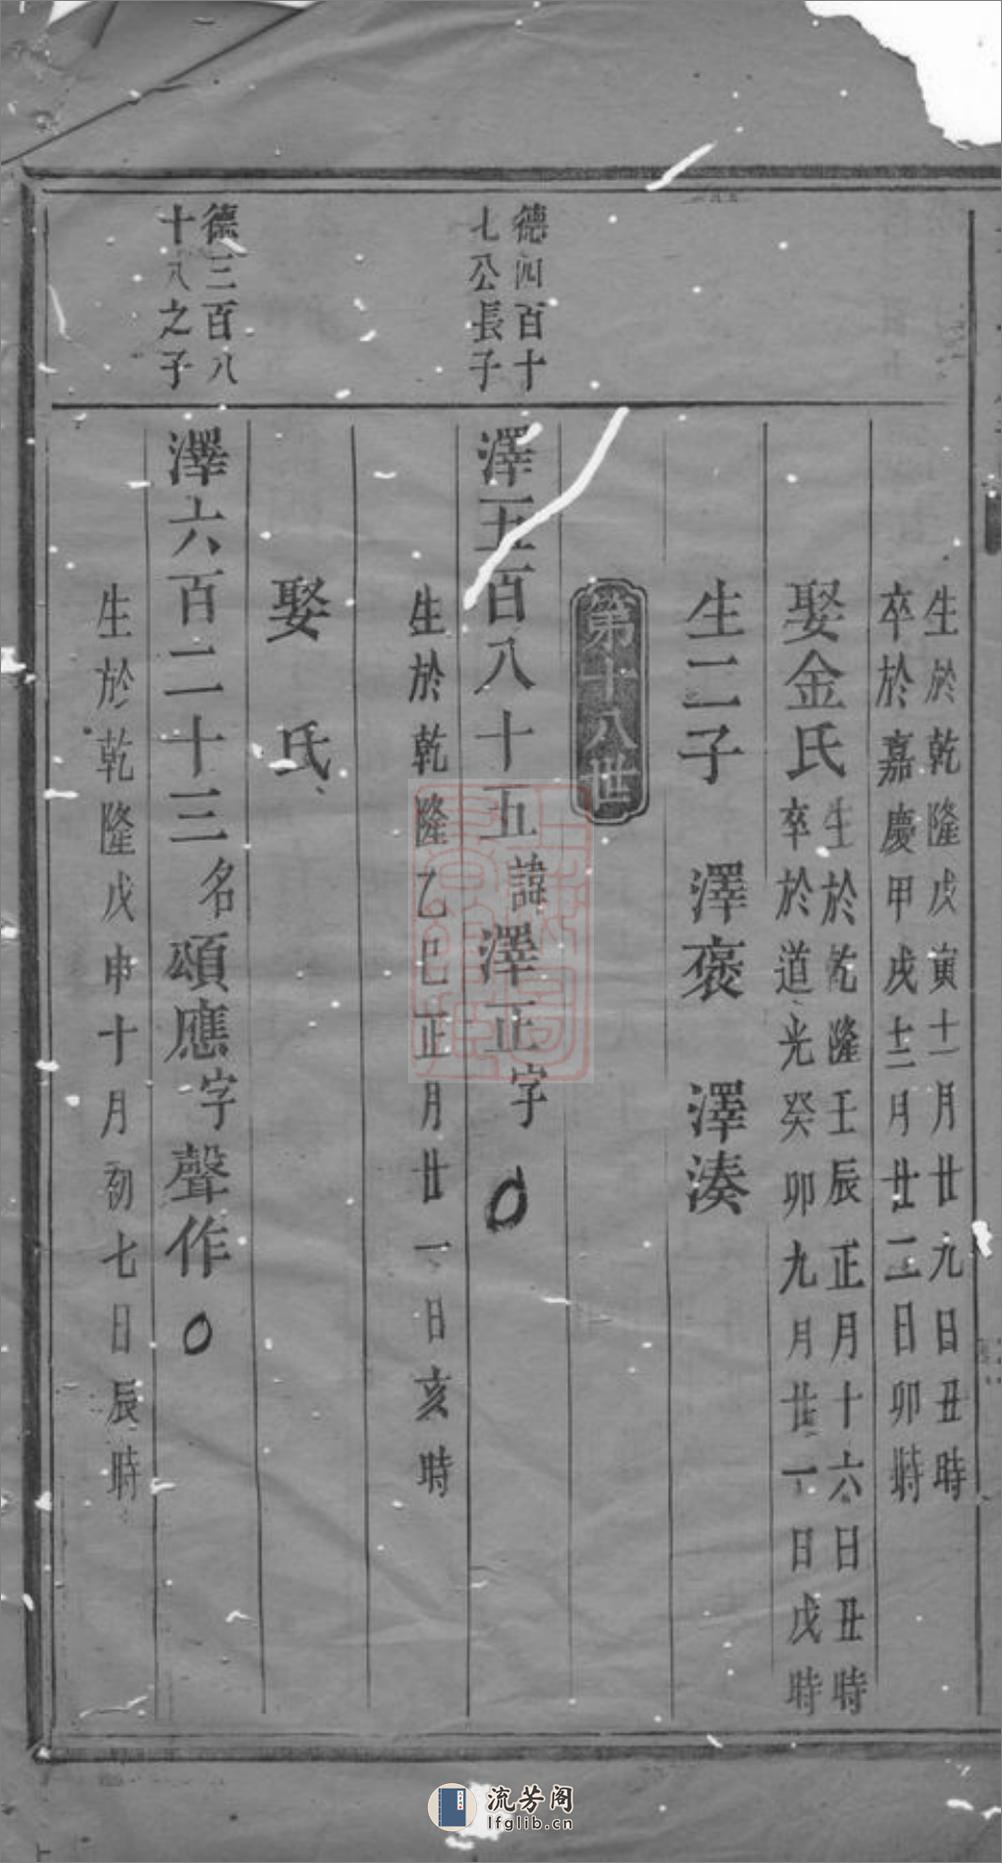 生於乾隆戊寅十一月廿九日丑時
卒於嘉慶甲戌十二月廿二日卯時
娶金氏
生於乾隆壬辰正月十六日丑時
卒於道光癸卯九月廿一日戌時
生二子　澤褒　澤湊
第十八世
德四百十
七公長子
澤五百八十五諱澤正字
生於乾隆乙巳正月廿一日亥時
娶　氏
德三百八
十八之子
澤六百二十三名頌應字聲作
生於乾隆戊申十月初七日辰時
流芳阁
lfglib.cn